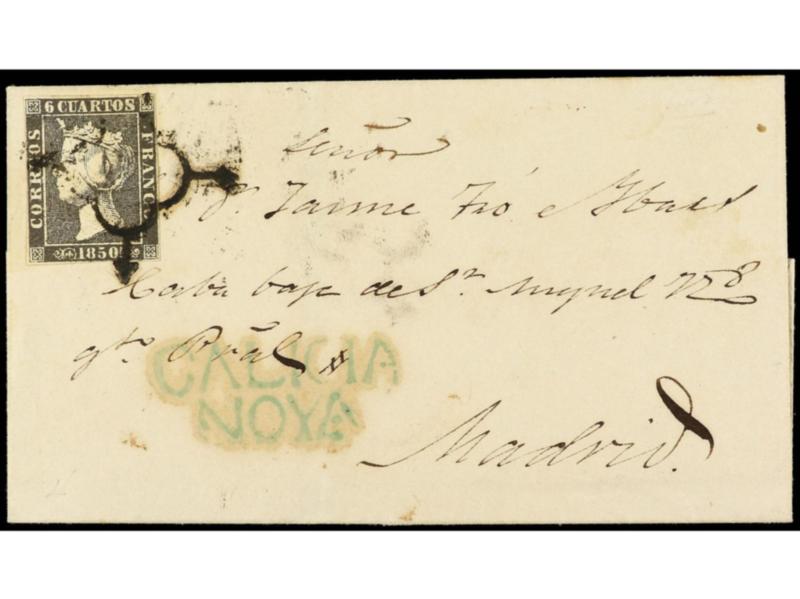 6 CUARTOS
CORREOS
FRANCO
1850
Señor
Dn. Jaime
Caba baja de Sn. Miguel N. 8
qto. Pràl
GALICIA
NOYA
Madrid.